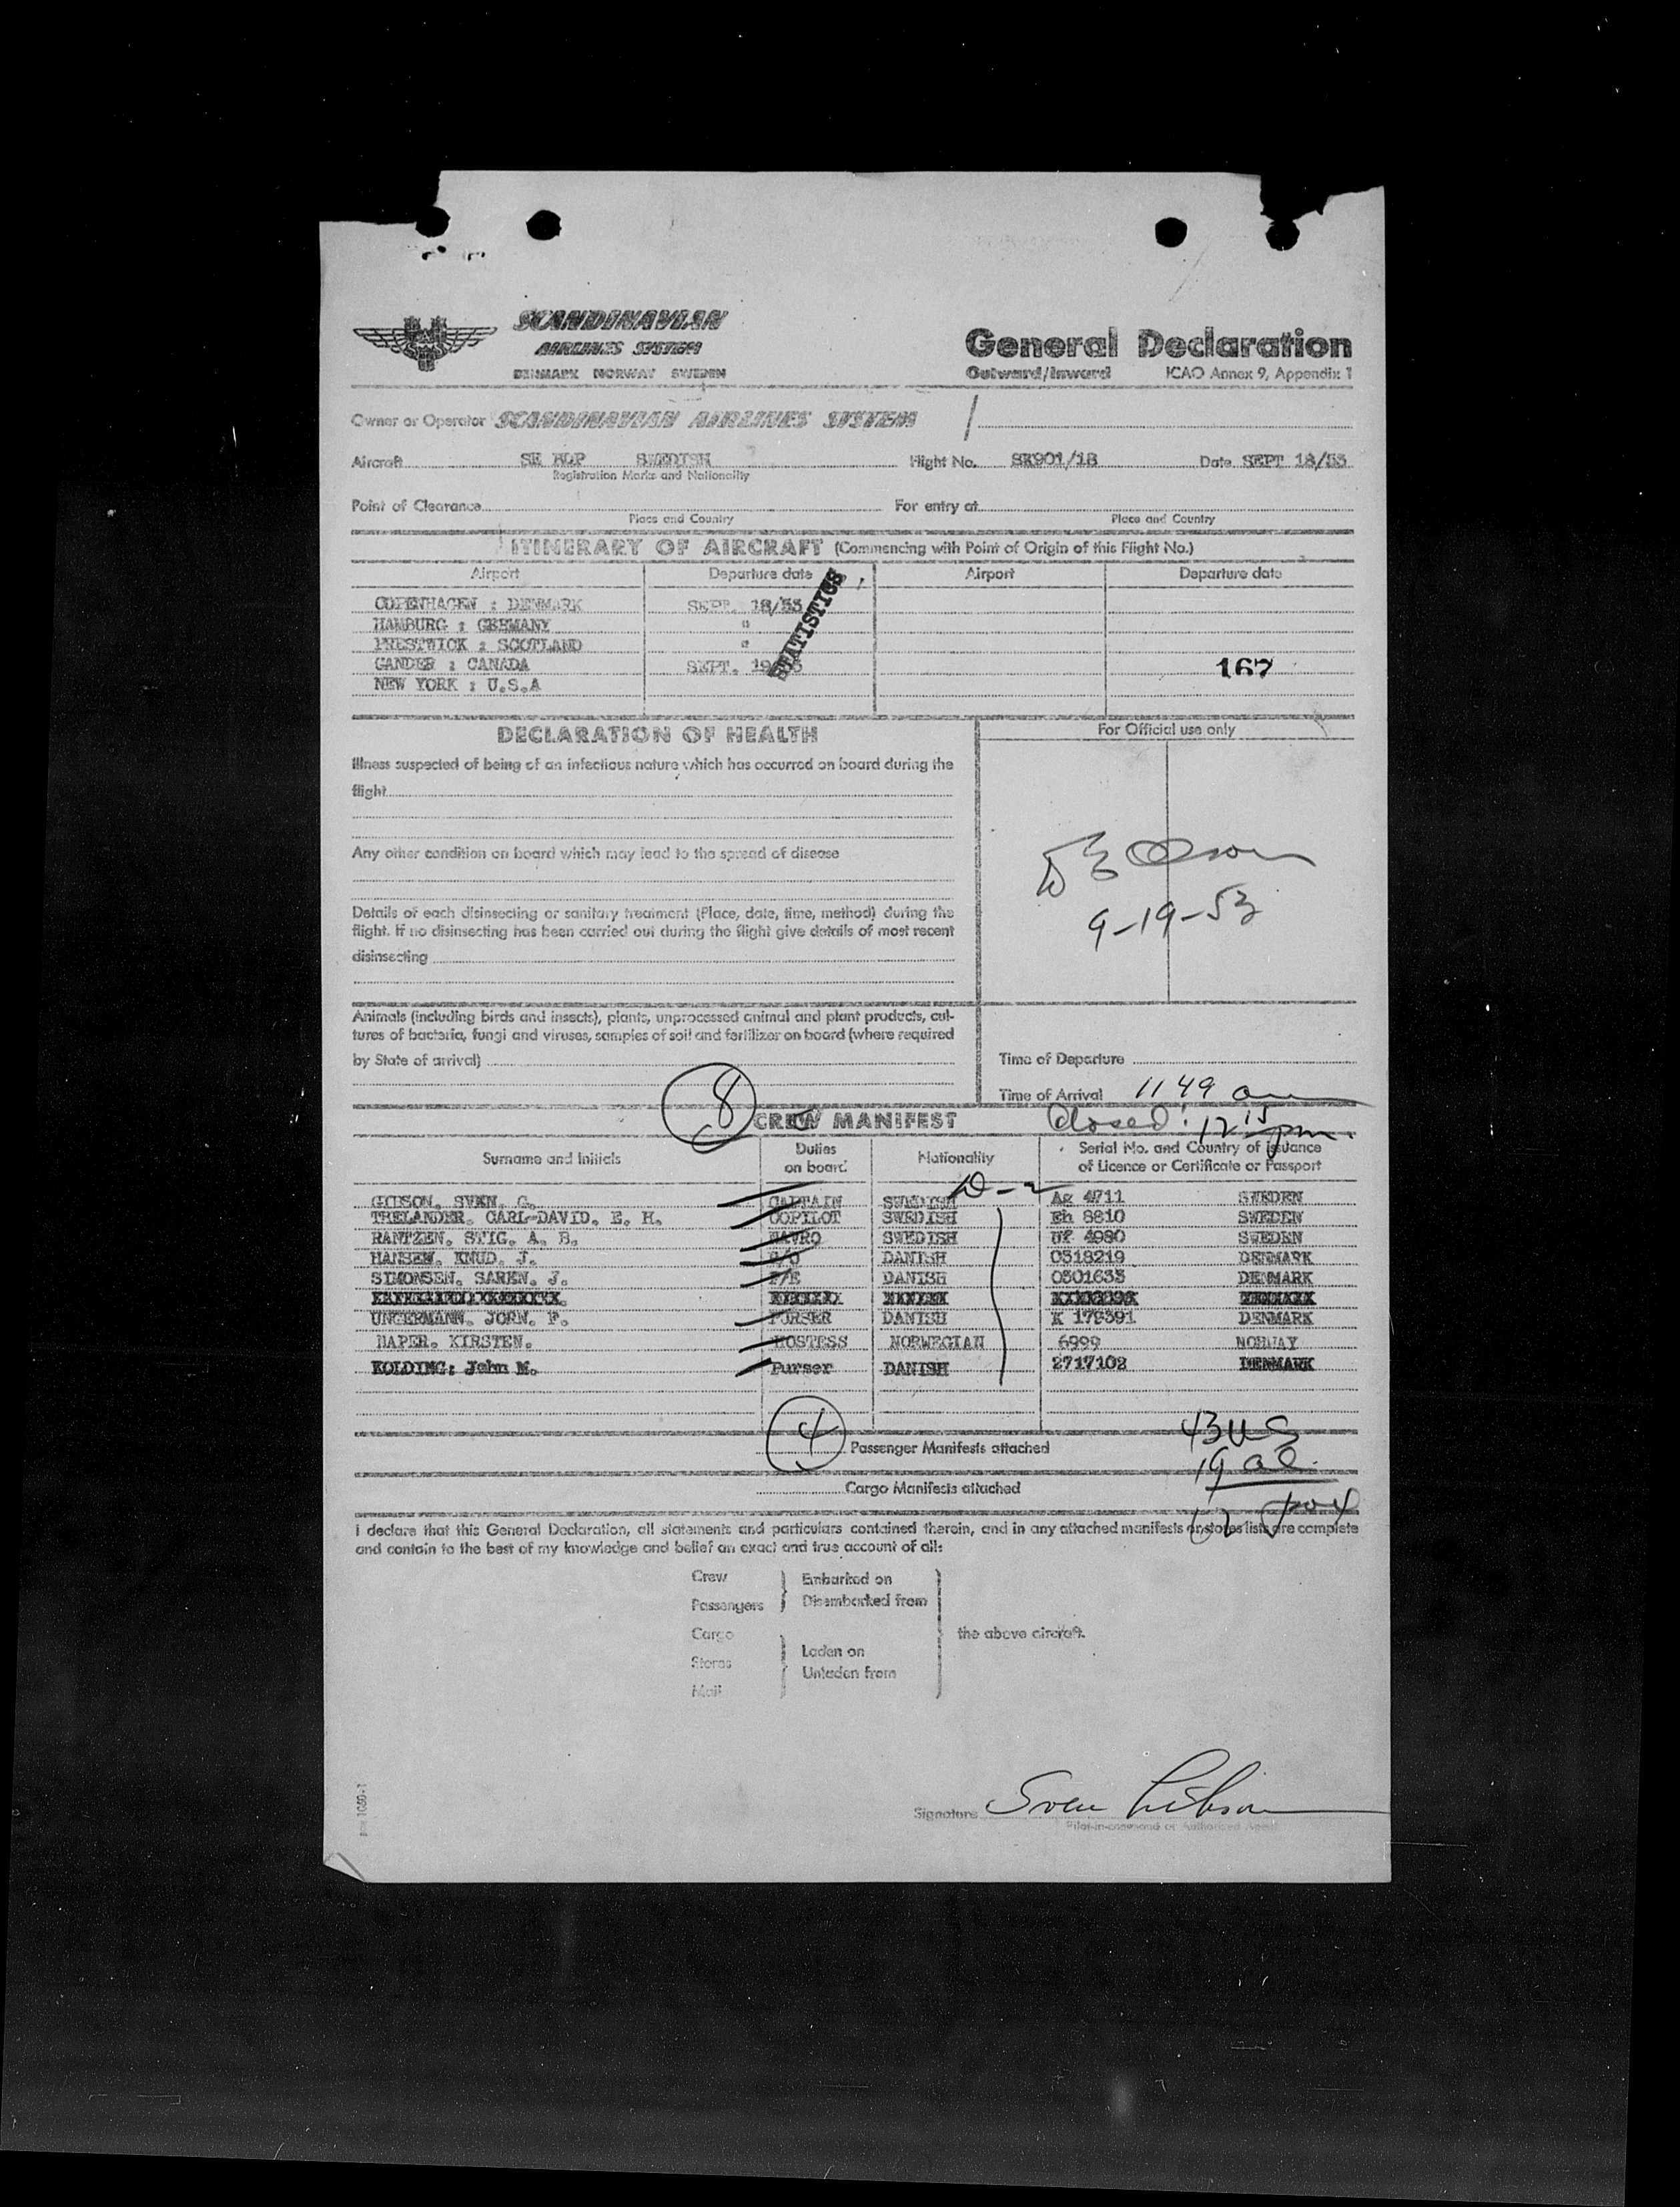 SCANDINAVIAN
AIRLINES SYSTEM
DENMARK NORWAY SWEDEN
General Declaration
Outward/Inward ICAO Annex 9, Appendix 1
Owner or Operator SCANDINAVIAN AIRLINES SYSTEM
Aircraft SE BDP SWEDISH Flight No. SK901/18 Date SEPT 18/53
Registration Marks and Nationality
Point of Clearance For entry at
Place and Country Place and Country
ITINERARY OF AIRCRAFT (Commencing with Point of Origin of this Flight No.)
Airport Departure date Airport Departure date
COPENHAGEN : DENMARK SEPT. 18/53
HAMBURG : GERMANY "
PRESTWICK : SCOTLAND "
GANDER : CANADA SEPT. 19/53
NEW YORK : U.S.A
STATISTICS
167
DECLARATION OF HEALTH
For Official use only
Illness suspected of being of an infectious nature which has occurred on board during the
flight
Any other condition on board which may lead to the spread of disease
Olson
9-19-53
Details of each disinsecting or sanitary treatment (Place, date, time, method) during the
flight. If no disinsecting has been carried out during the flight give details of most recent
disinsecting
Animals (including birds and insects), plants, unprocessed animal and plant products, cul-
tures of bacteria, fungi and viruses, samples of soil and fertilizer on board (where required
by State of arrival)
Time of Departure
Time of Arrival 1149 am
Closed: 12 15 pm.
8
CREW MANIFEST
Surname and Initials Duties on board Nationality Serial No. and Country of issuance
of Licence or Certificate or Passport
D-2
GIBSON, SVEN, G. CAPTAIN SWEDISH Ag 4711 SWEDEN
THELANDER, CARL-DAVID, E, H. COPILOT SWEDISH Eh 8810 SWEDEN
RANTZEN, STIG, A, B. NAVRO SWEDISH Uf 4980 SWEDEN
HANSEN, KNUD, J. R/O DANISH 0518219 DENMARK
SIMONSEN, SAREN, J. F/E DANISH 0501633 DENMARK
UNGERMANN, JORN, F. PURSER DANISH K 179391 DENMARK
HAPER, KIRSTEN. HOSTESS NORWEGIAN 6999 NORWAY
KOLDING: John M. Purser DANISH 2717102 DENMARK
4 Passenger Manifests attached
43 US
19 al.
62
Cargo Manifests attached
I declare that this General Declaration, all statements and particulars contained therein, and in any attached manifests or stores lists are complete
and contain to the best of my knowledge and belief an exact and true account of all:
Crew Embarked on
Passengers Disembarked from
Cargo the above aircraft.
Stores Laden on
Mail Unladen from
Signature Sven Gibson
Pilot-in-command or Authorised Agent